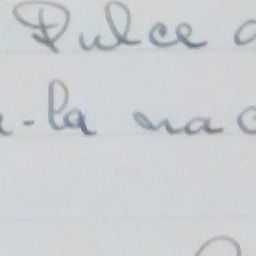 Dulce
-la na